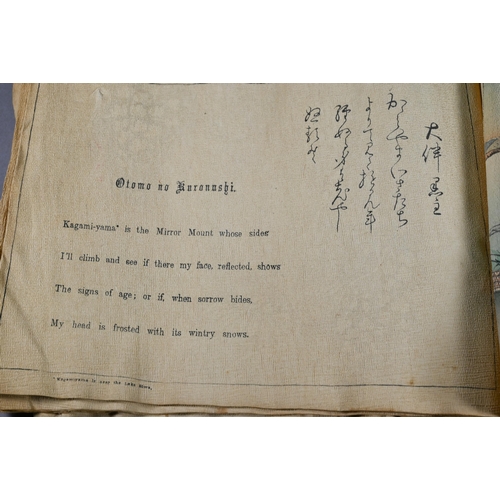 大伴黒主
Otomo no Kuronushi.
Kagami-yama* is the Mirror Mount whose sides
I'll climb and see if there my face, reflected, shows
The signs of age; or if, when sorrow bides,
My head is frosted with its wintry snows.
* Kagamiyama is near the Lake Biwa.